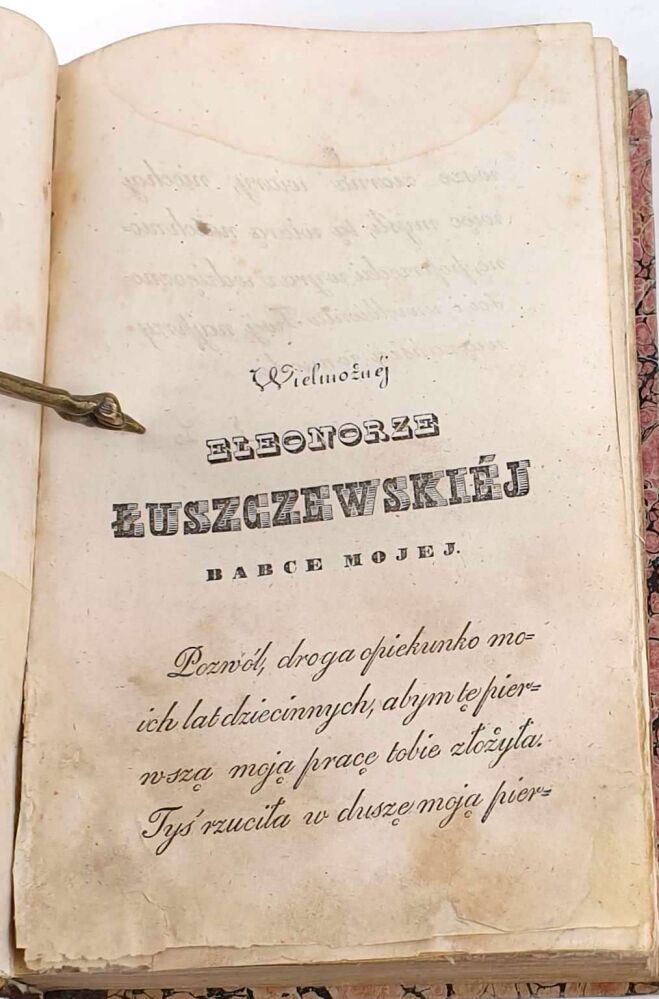 Wielmożnéj
ELEONORZE
ŁUSZCZEWSKIÉJ
BABCE MOJEJ.
Pozwól, droga opiekunko mo=
ich lat dziecinnych, abym tę pier=
wszą moją pracę tobie złożyła.
Tyś rzuciła w duszę moją pier=